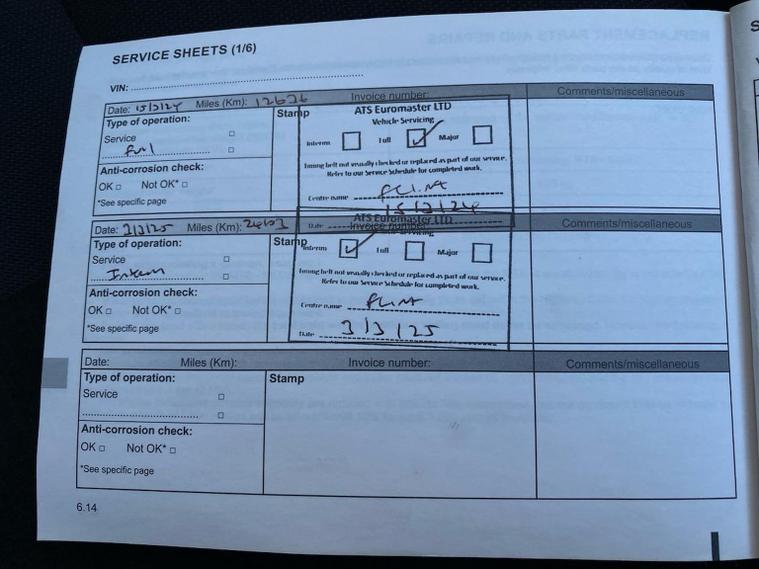 SERVICE SHEETS (1/6)
VIN:
Date: 15/3/24 Miles (Km): 12626 Invoice number: Comments/miscellaneous
Type of operation:
Service
Full
Anti-corrosion check:
OK Not OK*
*See specific page
Stamp
ATS Euromaster LTD
Vehicle Servicing
Interim Full Major
Timing belt not visually checked or replaced as part of our service.
Refer to our Service Schedule for completed work.
Centre name FLINT
Date 15/3/24
Date: 3/3/25 Miles (Km): Invoice number: Comments/miscellaneous
Type of operation:
Service
Interim
Anti-corrosion check:
OK Not OK*
*See specific page
Stamp
ATS Euromaster LTD
Interim Full Major
Timing belt not visually checked or replaced as part of our service.
Refer to our Service Schedule for completed work.
Centre name FLINT
Date 3/3/25
Date: Miles (Km): Invoice number: Comments/miscellaneous
Type of operation:
Service
Anti-corrosion check:
OK Not OK*
*See specific page
Stamp
6.14